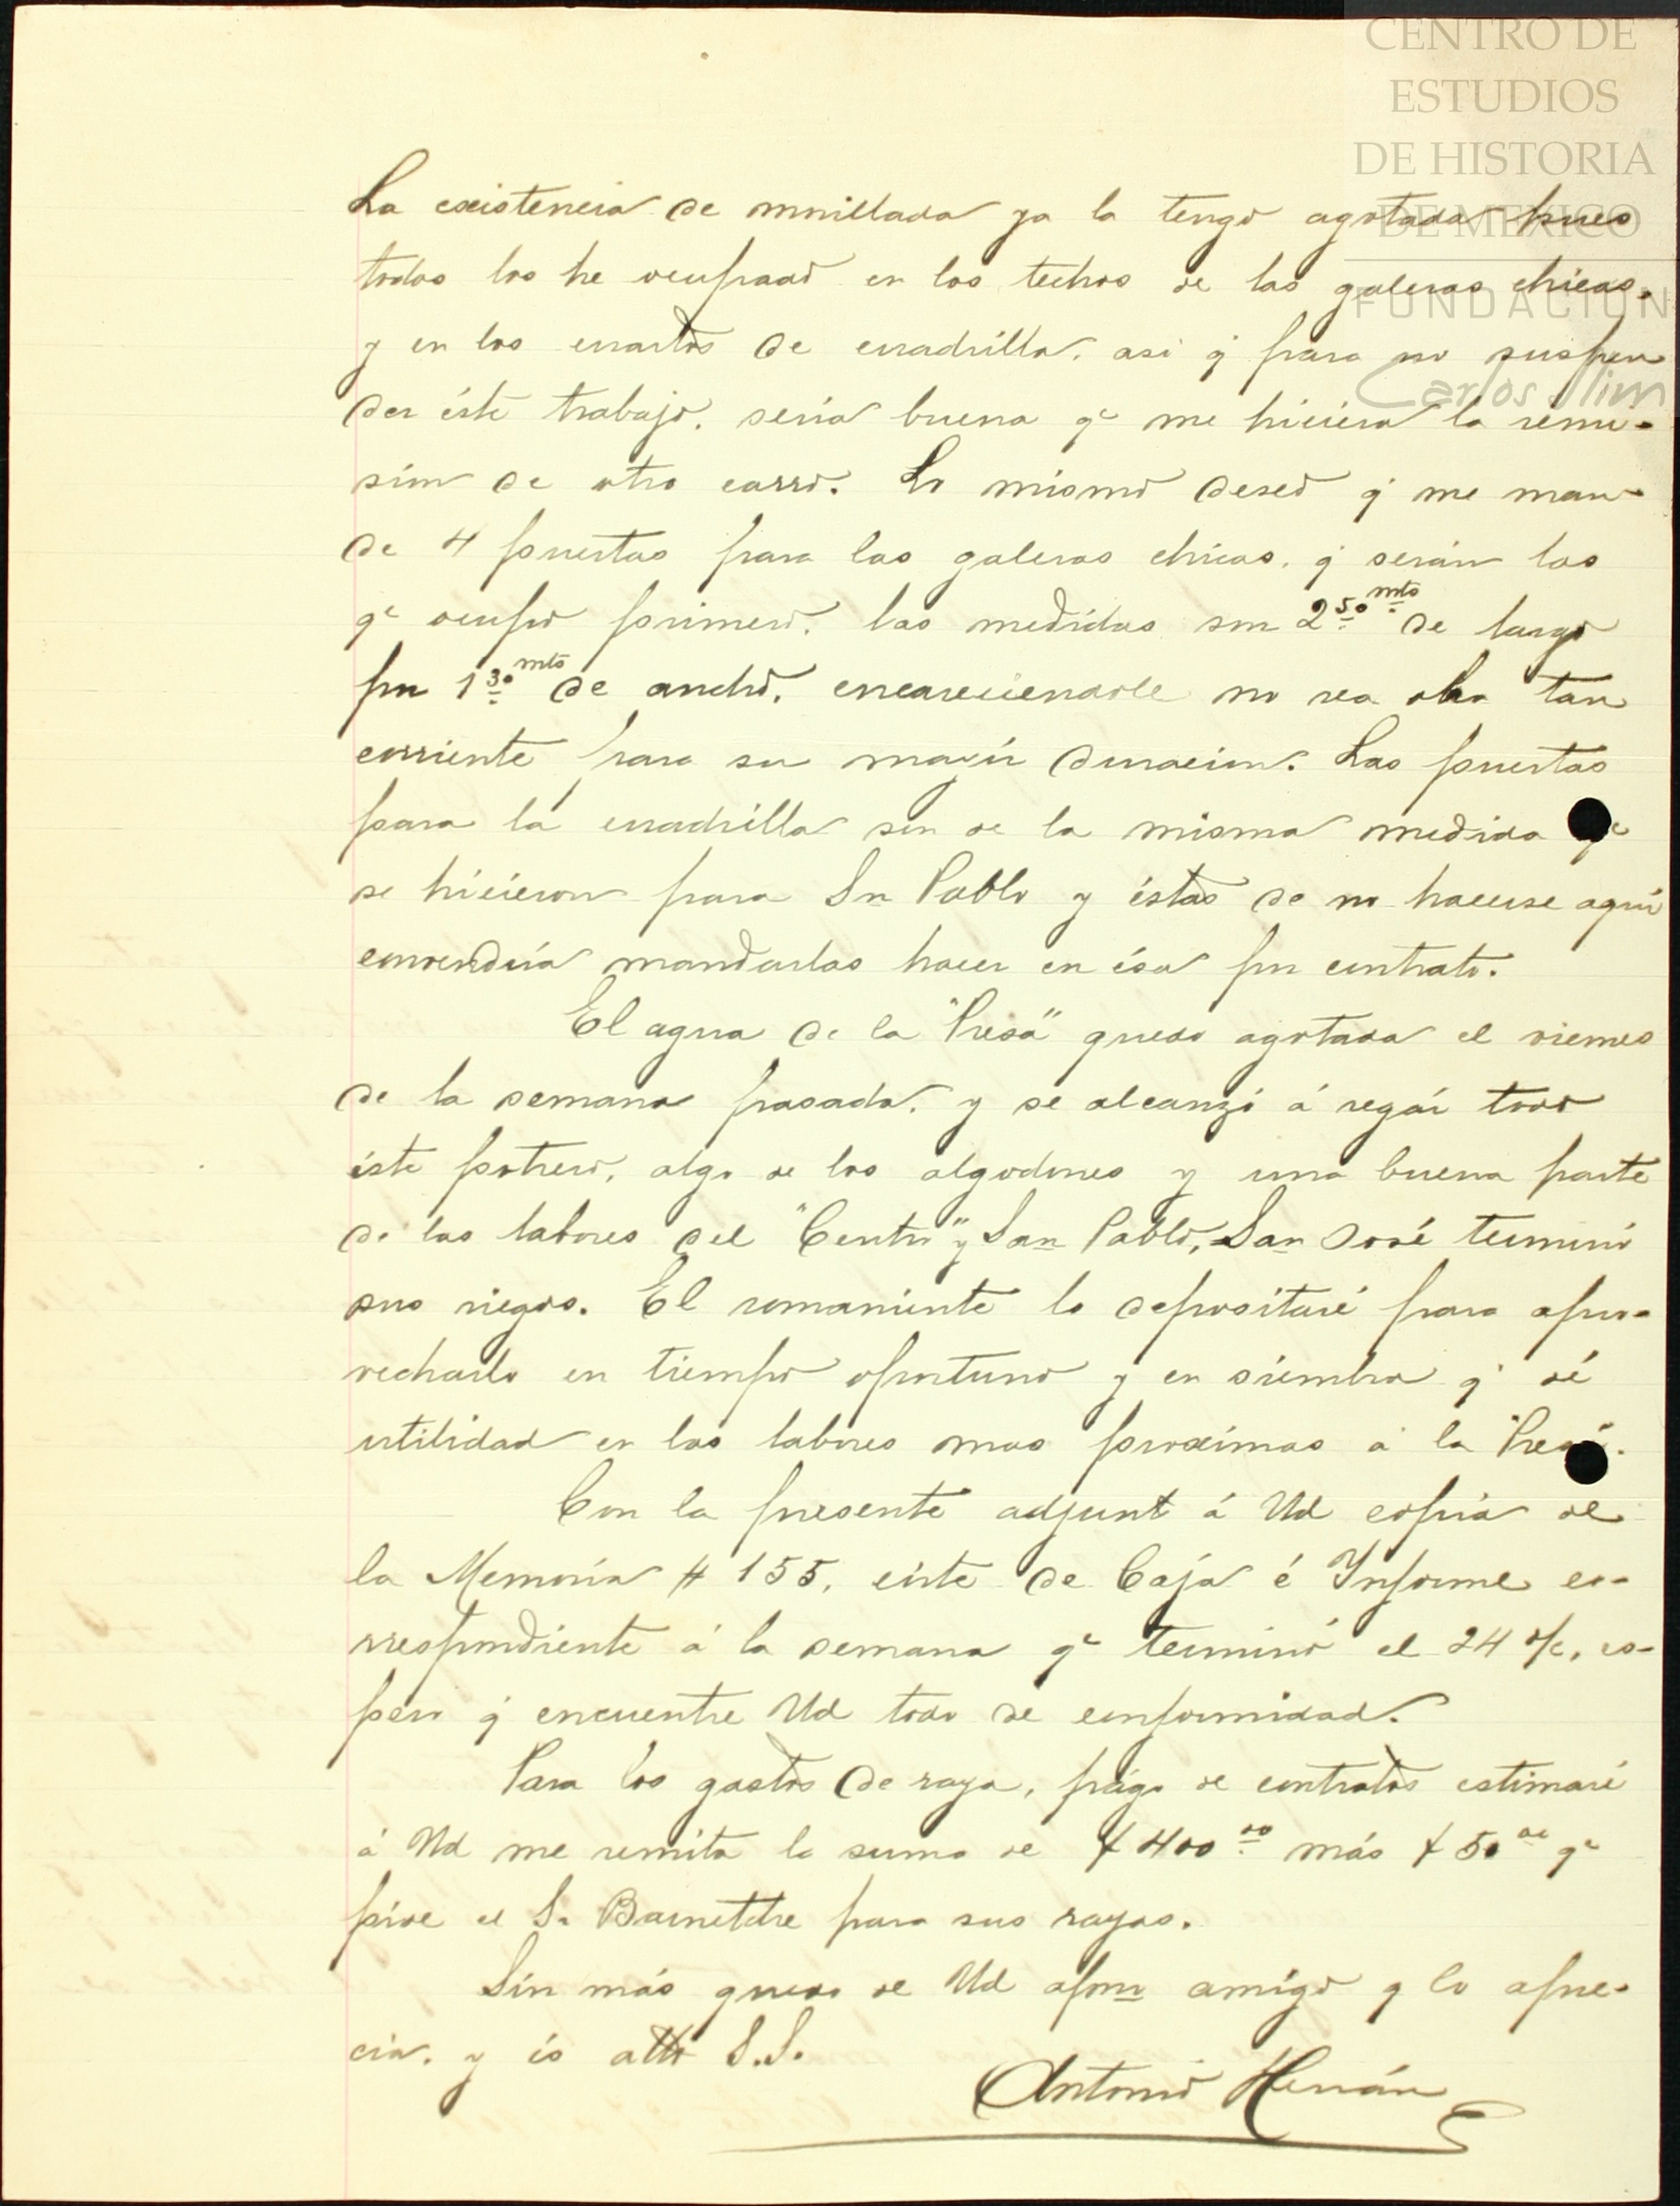 CENTRO DE
ESTUDIOS
DE HISTORIA
DE MEXICO
FUNDACION
Carlos Slim
La existencia de morillada ya la tengo agotada pues
todos los he ocupado en los techos de las galeras chicas,
y en los cuartos de cuadrilla, asi q̇ para no suspen
der éste trabajo, seria buena qᵉ me hiciera la remi-
sion de otro carro. Lo mismo deseo q̇ me man-
de 4 puertas para las galeras chicas, q̇ serán las
qᵉ ocupo primero, las medidas son 2 50 mts de largo
por 1 30 mts de ancho, encareciendole no sea obra tan
corriente para su mayór duracion. Las puertas
para la cuadrilla son de la misma medida qᵉ
se hicieron para Sn Pablo y éstas de no hacerse aquí
convendría mandarlas hacer en ésa por contrato.
El agua de la "Presa" quedo agotada el viernes
de la semana pasada, y se alcanzó á regár todo
éste potrero, algo de los algodones y una buena parte
de las labores del "Centro" y San Pablo, San José terminó
sus riegos. El remaniente lo depositaré para apro-
vecharlo en tiempo oportuno y en siembra q̇ dé
utilidad en las labores mas proximas á la "Presa".
Con la presente adjunt á Ud copia de
la Memoria # 155, córte de Caja é Informe co-
rrespondiente á la semana qᵉ terminó el 24 %, es-
pero q̇ encuentre Ud todo de conformidad.
Para los gastos de raya, págo de contratos estimaré
á Ud me remita la suma de $ 400 00 más $ 50 00 qᵉ
pide el Sr para sus rayas.
Sin más quedo de Ud afmo amigo q lo apre-
cia, y és atto S.S.
Antonio Hernán